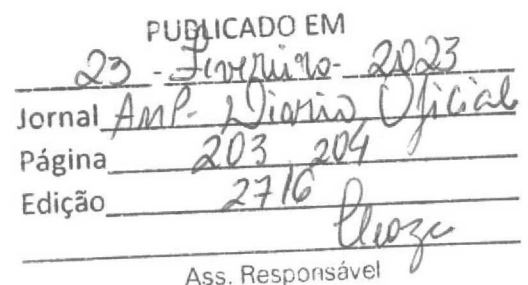 PUBLICADO EM
23 - Fevereiro - 2023
Jornal AMP - Diário Oficial
Página 203 204
Edição 2716
Ass. Responsável